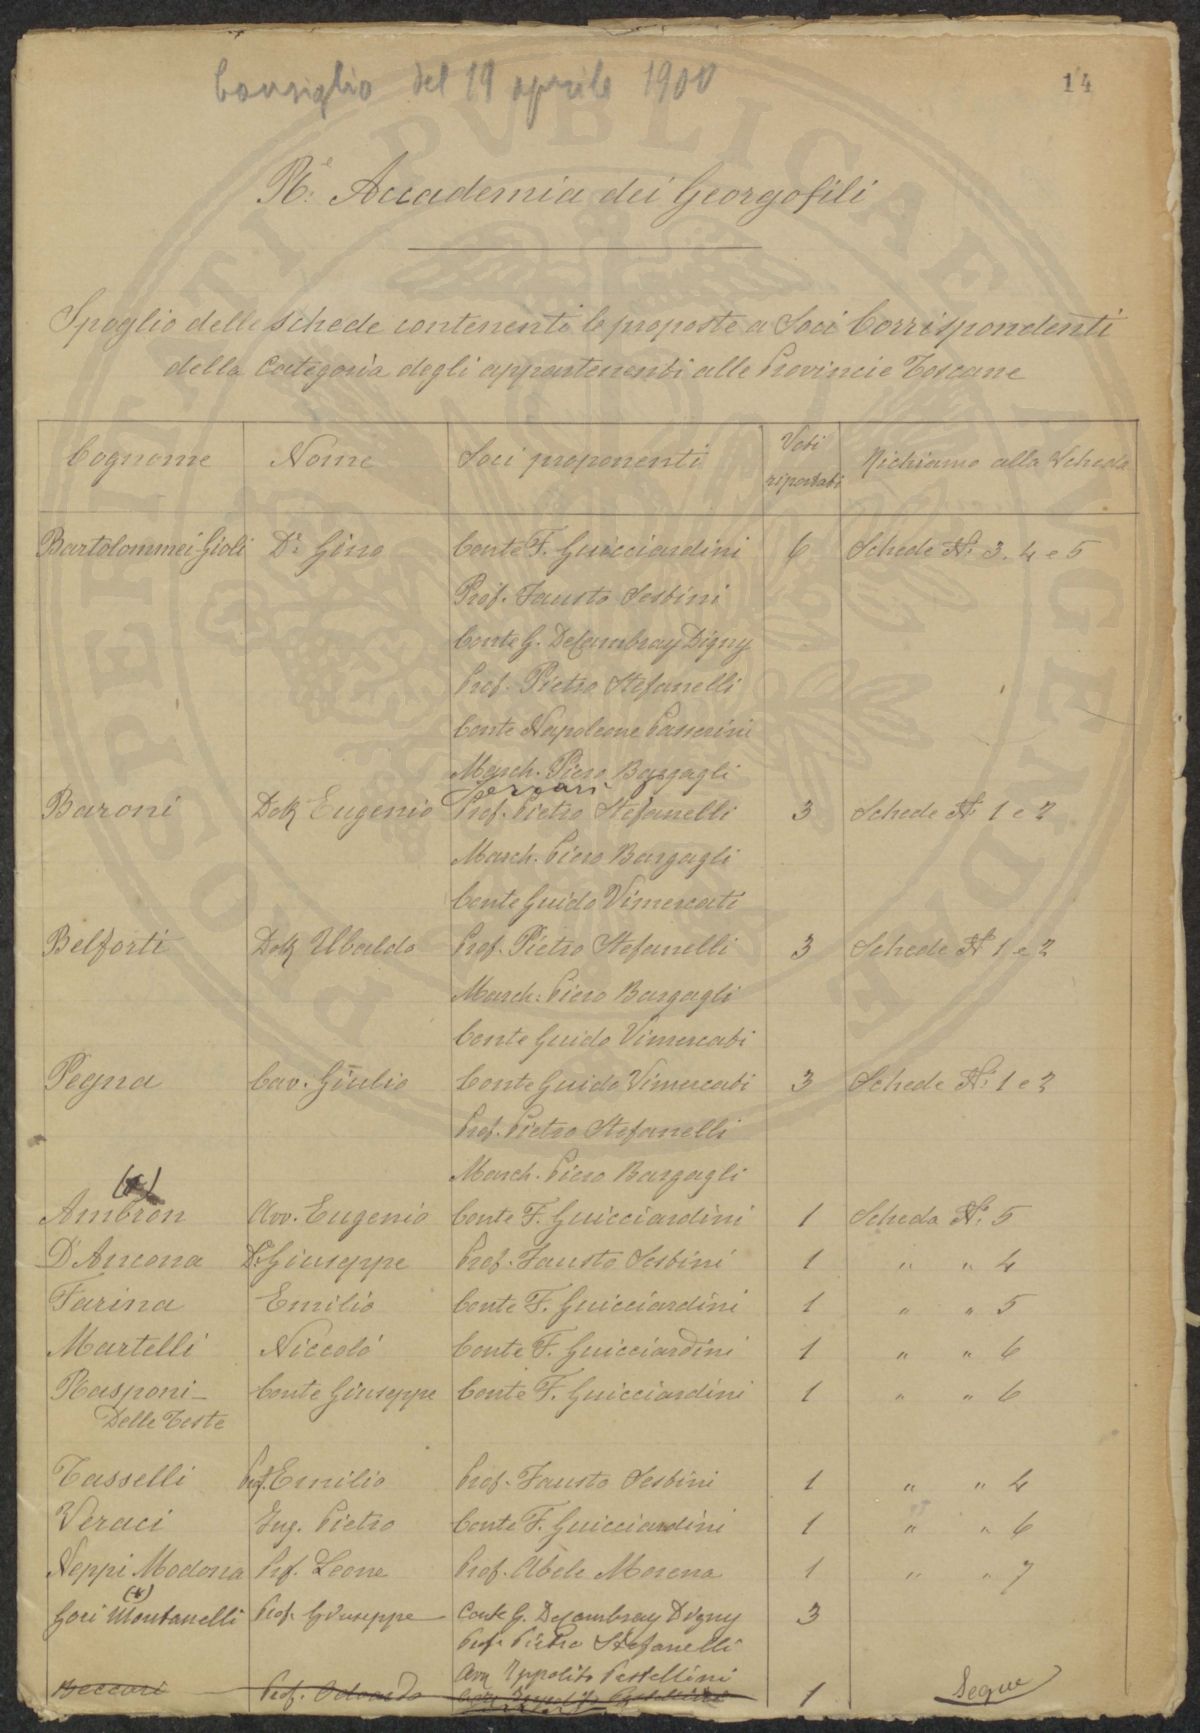 Consiglio del 19 aprile 1900
14
R.e Accademia dei Georgofili
Spoglio delle schede contenenti le proposte a Soci Corrispondenti
della Categoria degli appartenenti alle Provincie Toscane
Cognome Nome Soci proponenti Voti riportati Richiamo alla Scheda
Bartolommei Gioli Dr. Gino Conte F. Guicciardini 6 Schede No. 3. 4 e 5
Prof. Fausto Sestini
Conte G. DeCambray Digny
Prof. Pietro Stefanelli
Conte Napoleone Passerini
March. Piero Bargagli
Ferrari
Baroni Dott Eugenio Prof. Pietro Stefanelli 3 Schede No 1 e 2
March. Piero Bargagli
Conte Guido Vimercati
Belforti Dott Ubaldo Prof. Pietro Stefanelli 3 Schede No 1 e 2
March: Piero Bargagli
Conte Guido Vimercati
Pegna Cav. Giulio Conte Guido Vimercati 3 Schede No. 1 e 2
Prof. Pietro Stefanelli
March. Piero Bargagli
Ambron Avv. Eugenio Conte F. Guicciardini 1 Scheda No. 5
D'Ancona Dr Giuseppe Prof. Fausto Sestini 1 " " 4
Farina Emilio Conte F. Guicciardini 1 " " 5
Martelli Niccolò Conte F. Guicciardini 1 " " 6
Rasponi- Conte Giuseppe Conte F. Guicciardini 1 " " 6
Delle Teste
Tasselli Prof. Emilio Prof. Fausto Sestini 1 " " 4
Veraci Ing. Pietro Conte F. Guicciardini 1 " " 6
Neppi Modona Prof. Leone Prof. Abele Morena 1 " " 7
(*)
Gori Montanelli Prof. Giuseppe Conte G. DeCambray Digny 3
Prof. Pietro Stefanelli
Avv Ippolito Pestellini
Beccari Prof. Odoardo 1 Segue
PROSPERITATI PVBLICAE AVGENDAE